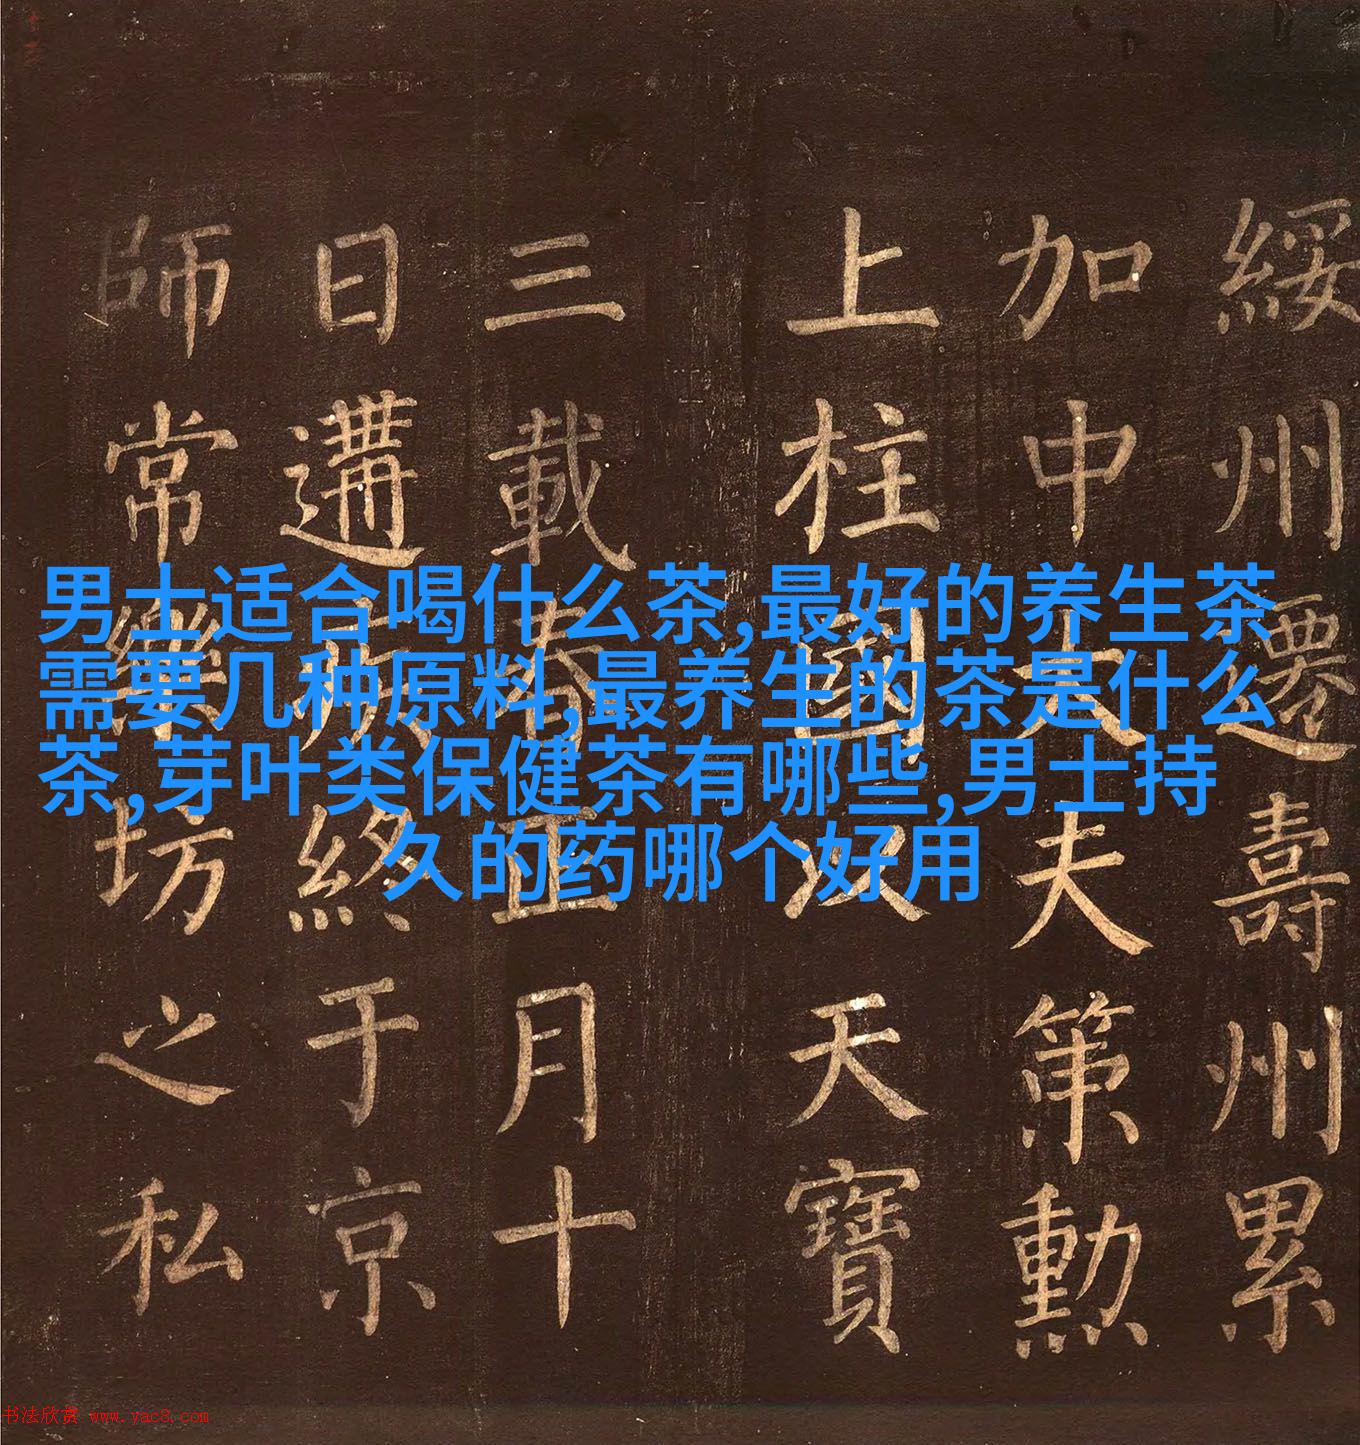 男士适合喝什么茶,最好的养生茶
需要几种原料,最养生的茶是什么
茶,芽叶类保健茶有哪些,男士持
久的药哪个好用
綏州遷壽州累
加中大夫策勳
上柱國以天寶
三載春正月十
日遘疾終于京
師常樂坊之私
书法欣赏 www.yac8.com